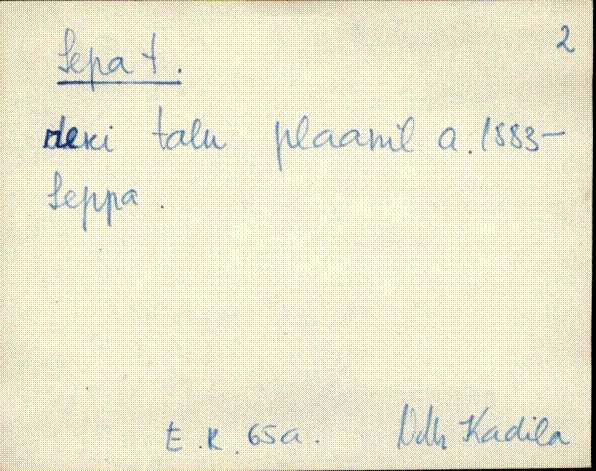 2
Sepa t.
neki talu plaanil a. 1883-
Seppa.
E. K. 65a. Vdh Kadila